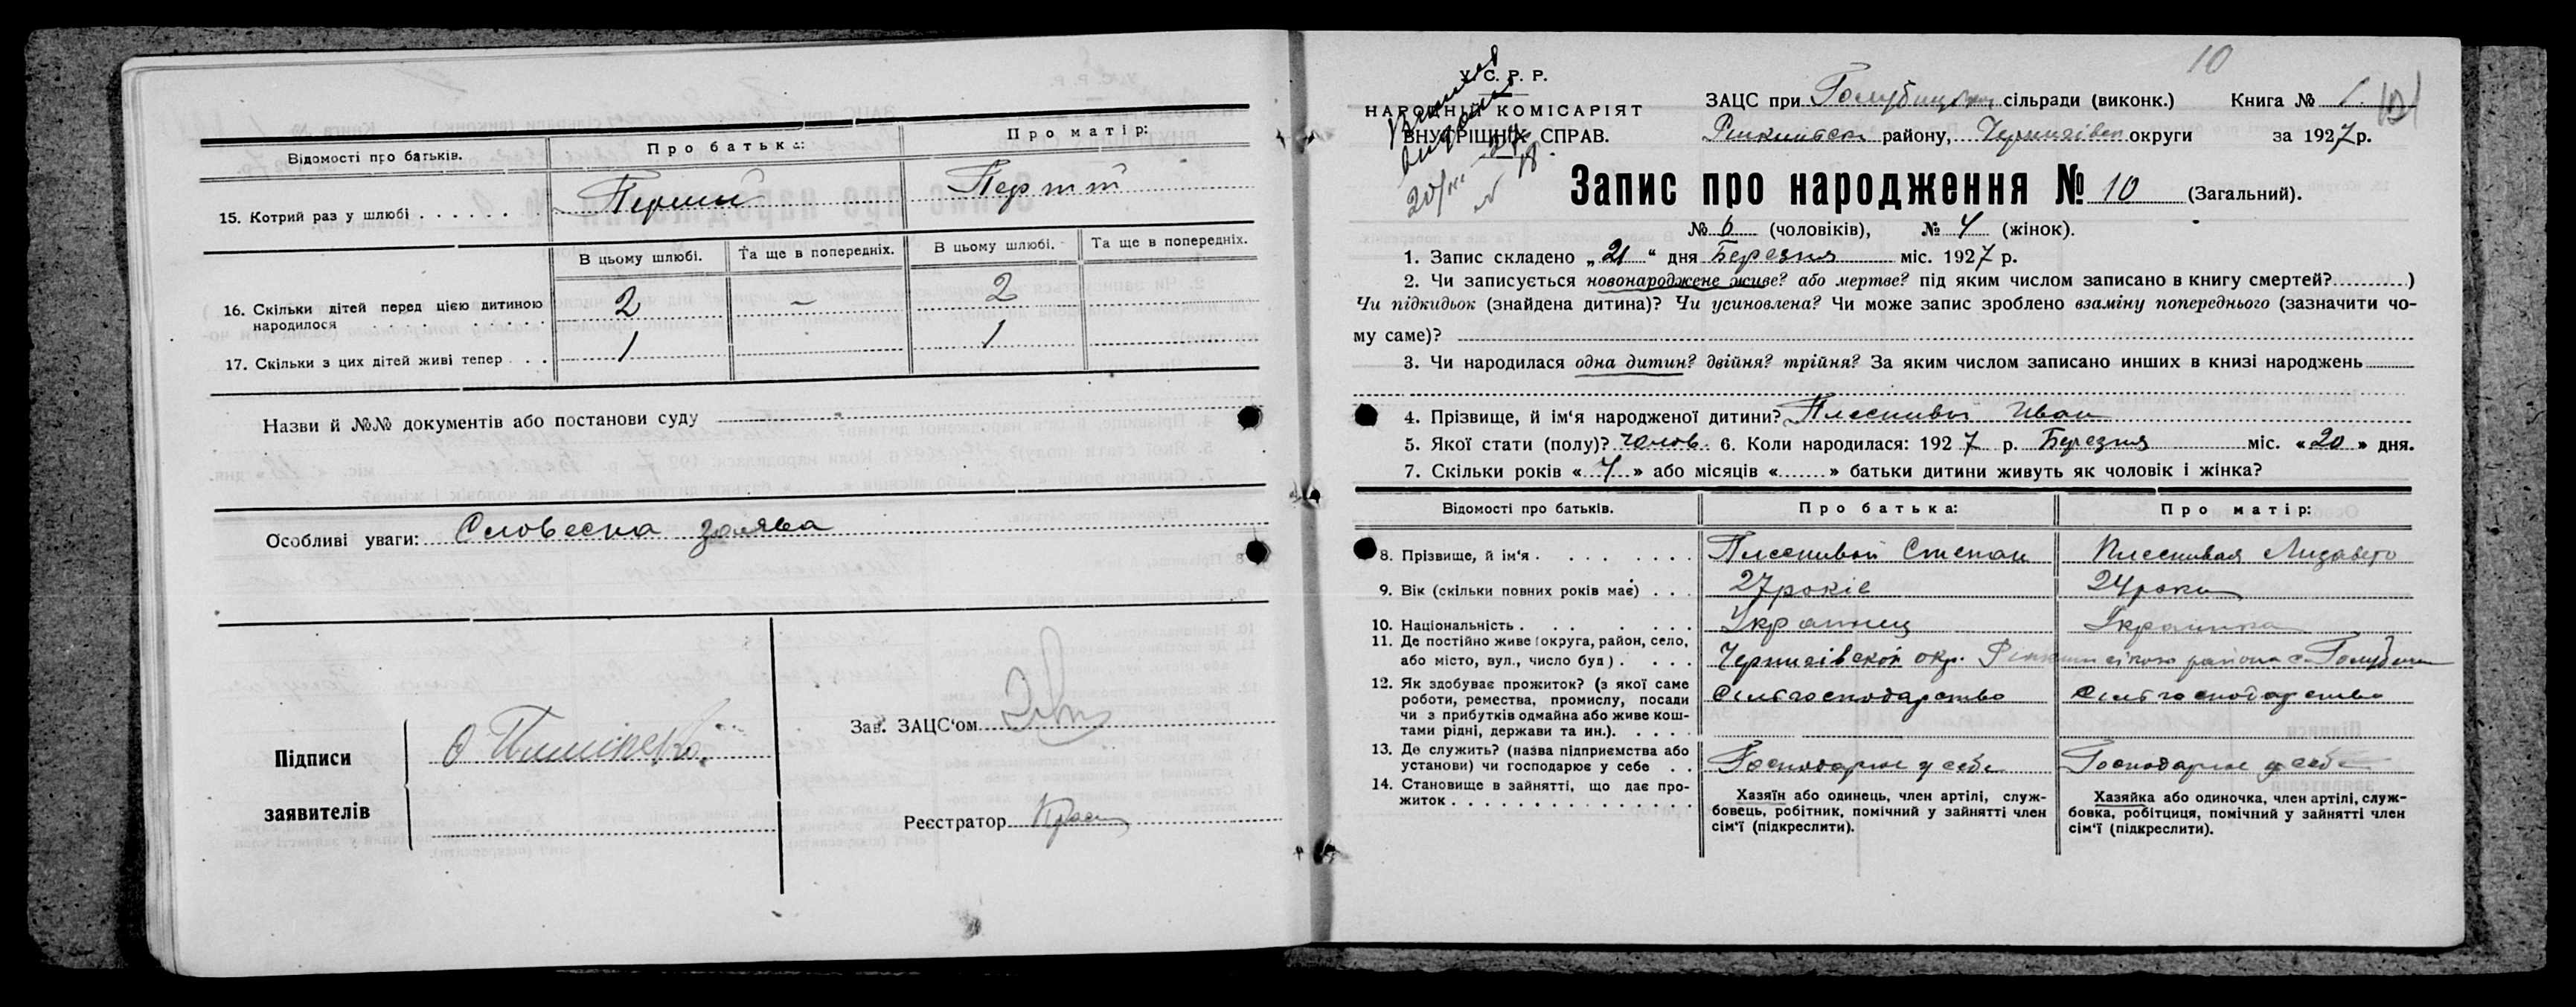 Відомості про батьків.
Про батька:
Про матір:
15. Котрий раз у шлюбі . . . . . . .
Перший
В цьому шлюбі.
Та ще в попередніх.
В цьому шлюбі.
Та ще в попередніх.
16. Скільки дітей перед цією дитиною
народилося . . . . . . . . .
2
–
2
17. Скільки з цих дітей живі тепер . . .
1
1
Назви й №№ документів або постанови суду
Особливі уваги: Словесна заява
Підписи
заявителів
Зав. ЗАЦС'ом
Реєстратор
10
У. С. Р. Р.
НАРОДНІЙ КОМІСАРІЯТ
ВНУТРІШНІХ СПРАВ.
ЗАЦС при сільради (виконк.) Книга № 1.
району, округи за 1927 р.
Запис про народження № 10 (Загальний).
№ 6 (чоловіків), № 4 (жінок).
1. Запис складено „21" дня Березня міс. 1927 р.
2. Чи записується новонароджене живе? або мертве? під яким числом записано в книгу смертей? )
Чи підкидьок (знайдена дитина)? Чи усиновлена? Чи може запис зроблено взаміну попереднього (зазначити чо-
му саме)?
3. Чи народилася одна дитин? двійня? трійня? За яким числом записано инших в книзі народжень
4. Прізвище, й ім'я народженої дитини? Плесниви Иван
5. Якої стати (полу)? чолов. 6. Коли народилася: 1927 р. Березня міс. «20» дня.
7. Скільки років «4» або місяців « » батьки дитини живуть як чоловік і жінка?
Відомості про батьків.
Про батька:
Про матір:
8. Прізвище, й ім'я . . . . . . . .
Плеснивой Степан
Плеснивая Лизавето
9. Вік (скільки повних років має) . . .
27 років
24 роки
10. Національність . . . . . . .
Украинец
Украинка
11. Де постійно живе (округа, район, село,
або місто, вул., число буд) . . . .
Чернигівской окр. района с.
12. Як здобуває прожиток? (з якої саме
роботи, ремества, промислу, посади
чи з прибутків одмайна або живе кош-
тами рідні, держави та ин.). . . . .
Сільгосподарство
Сільгосподарство
13. Де служить? (назва підприємства або
установи) чи господарює у себе . .
Господарює у себе
Господарює у себе
14. Становище в зайнятті, що дає про-
житок . . . . . . . . . . . . . .
Хазяїн або одинець, член артілі, служ-
бовець, робітник, помічний у зайнятті член
сім'ї (підкреслити).
Хазяйка або одиночка, член артілі, служ-
бовка, робітциця, помічний у зайнятті член
сім'ї (підкреслити).